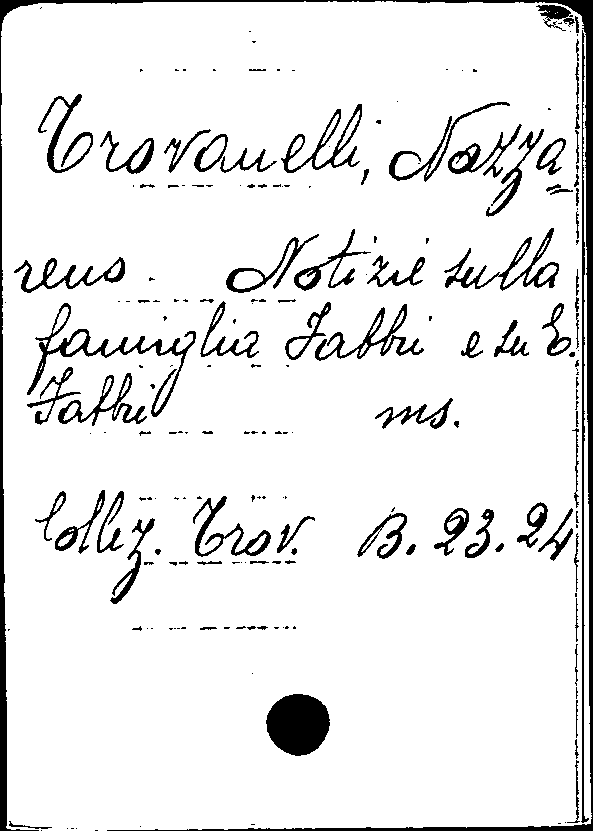 Trovanelli, Nazza=
reno. Notizie sulla
famiglia Fabbri e su E.
Fabbri ms.
Collez. Trov. B. 23. 24